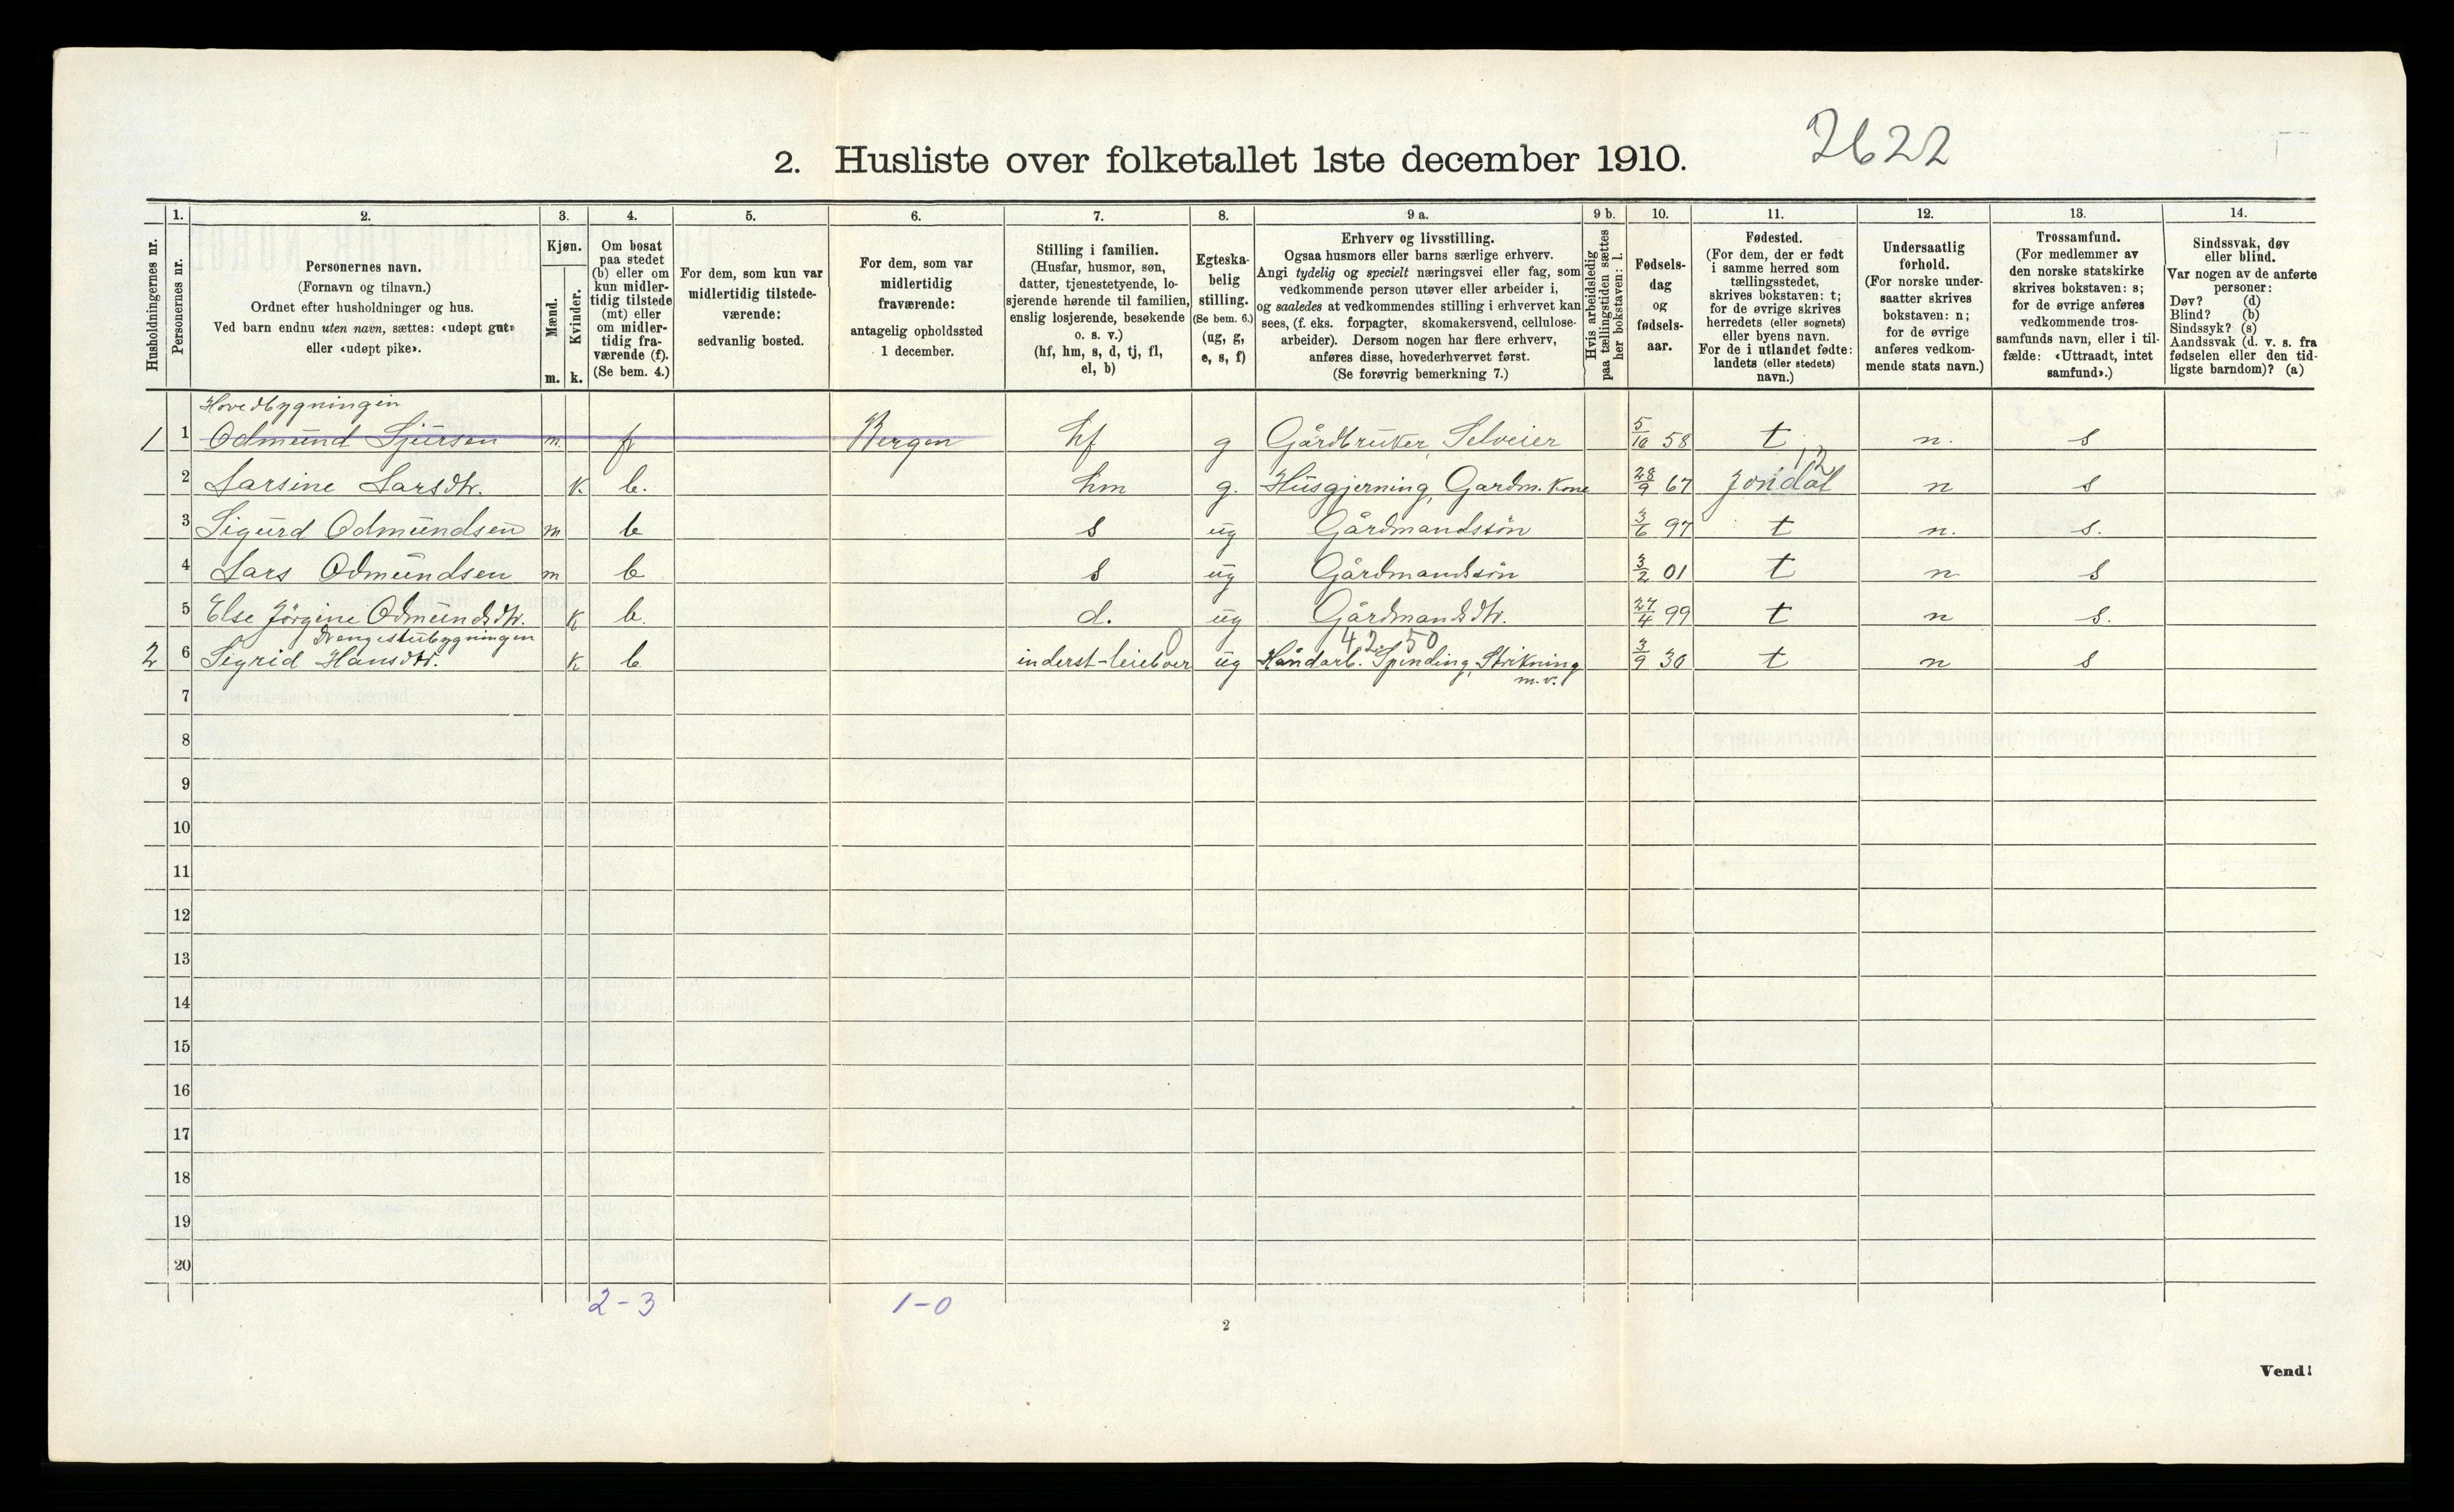 2622
2. Husliste over folketallet 1ste december 1910.
Husholdningernes nr.
1.
Personernes nr.
2.
Personernes navn.
(Fornavn og tilnavn.)
Ordnet efter husholdninger og hus.
Ved barn endnu uten navn, sættes: «udøpt gut»
eller «udøpt pike».
3.
Kjøn.
Mænd.
Kvinder.
m. k.
4.
Om bosat
paa stedet
(b) eller om
kun midler-
tidig tilstede
(mt) eller
om midler-
tidig fra-
værende (f).
(Se bem. 4.)
5.
For dem, som kun var
midlertidig tilstede-
værende:
sedvanlig bosted.
6.
For dem, som var
midlertidig
fraværende:
antagelig opholdssted
1 december.
7.
Stilling i familien.
(Husfar, husmor, søn,
datter, tjenestetyende, lo-
sjerende hørende til familien,
enslig losjerende, besøkende
o. s. v.)
(hf, hm, s, d, tj, fl,
el, b)
8.
Egteska-
belig
stilling.
(Se bem. 6.)
(ug, g,
e, s, f)
9 a.
Erhverv og livsstilling.
Ogsaa husmors eller barns særlige erhverv.
Angi tydelig og specielt næringsvei eller fag, som
vedkommende person utøver eller arbeider i,
og saaledes at vedkommendes stilling i erhvervet kan
sees, (f. eks. forpagter, skomakersvend, cellulose-
arbeider). Dersom nogen har flere erhverv,
anføres disse, hovederhvervet først.
(Se forøvrig bemerkning 7.)
9 b.
Hvis arbeidsledig
paa tællingstiden sættes
her bokstaven: l.
10.
Fødsels-
dag
og
fødsels-
aar.
11.
Fødested.
(For dem, der er født
i samme herred som
tællingsstedet,
skrives bokstaven: t;
for de øvrige skrives
herredets (eller sognets)
eller byens navn.
For de i utlandet fødte:
landets (eller stedets)
navn.)
12.
Undersaatlig
forhold.
(For norske under-
saatter skrives
bokstaven: n;
for de øvrige
anføres vedkom-
mende stats navn.)
13.
Trossamfund.
(For medlemmer av
den norske statskirke
skrives bokstaven: s;
for de øvrige anføres
vedkommende tros-
samfunds navn, eller i til-
fælde: «Uttraadt, intet
samfund».)
14.
Sindssvak, døv
eller blind.
Var nogen av de anførte
personer:
Døv? (d)
Blind? (b)
Sindssyk? (s)
Aandssvak (d. v. s. fra
fødselen eller den tid-
ligste barndom)? (a)
Hovedbygningen
1 1 Odmund Sjursen m. f Bergen hf g Gårdbruker, Selveier 5/10 58 t n. s
12
2 Larsine Larsdtr. k. b. hm g. Husgjerning, Gardm. Kone 28/9 67 Jondal n s
3 Sigurd Odmundsen m b s ug Gårdmandssön 3/6 97 t n. s.
4 Lars Odmundsen m b s ug Gårdmandssön 3/2 01 t n s
5 Else Jörgine Odmundsdtr. k b. d. ug Gårdmandsdtr. 27/4 99 t n s.
Drengestubygningen
0 42.50
2 6 Sigrid Hansdtr. k b inderst-leieboer ug Håndarb. Spinding, Strikning 3/9 30 t n s
m.v.
7
8
9
10
11
12
13
14
15
16
17
18
19
20
2-3 1-0
2
Vend!